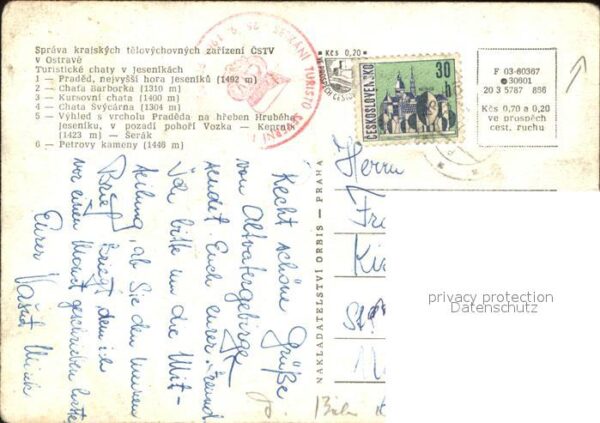 Správa krajských tělovýchovných zařízení ČSTV
v Ostravě
Turistické chaty v jeseníkách
1 — Praděd, nejvyšší hora jeseníků (1492 m)
2 — Chata Barborka (1310 m)
3 — Kursovní chata (1400 m)
4 — Chata Švýcárna (1304 m)
5 — Výhled s vrcholu Praděda na hřeben Hrubého
jeseníku, v pozadí pohoří Vozka — Keprník
(1423 m) — Šerák
6 — Petrovy kameny (1446 m)
Kčs 0,20
ČESKOSLOVENSKO
30
h
F 03-80367
30901
20 3 5787 866
Kčs 0,70 a 0,20
ve prospěch
cest. ruchu
NAKLADATELSTVÍ ORBIS — PRAHA
Recht schöne Grüße
von Altvatergebirge
sendet Euch eurer Freund
Ich bitte um die Mit-
teilung, ob Sie den meinen
Brief kriegt, dem ich
vor einem Monat geschrieben hatte
Eurer
Herrn
privacy protection
Datenschutz